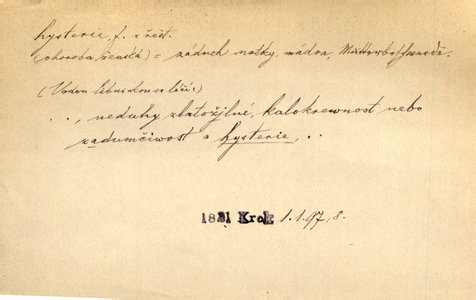 hysterie, f. z řečt.
(choroba ženská) = záduch matky, mádra, Mutterbeschwerde.
(Vodou libnickou se léčí:)
.., neduhy zlatožilné, kalokrewnost nebo
zadumčiwost a hysterie, ..
1821 Krok 1.1.97, 8.